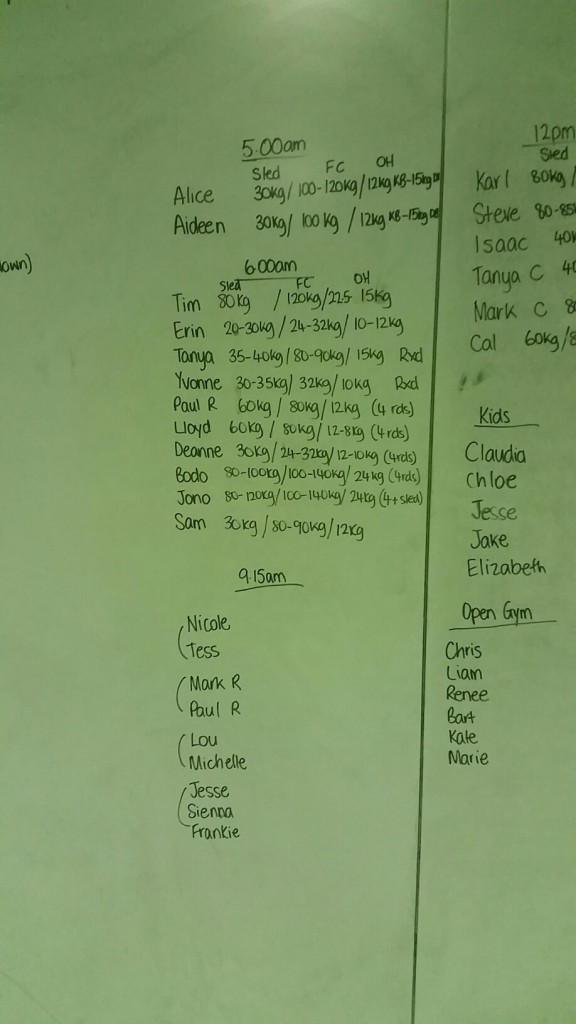 own)
5.00am
Sled FC OH
Alice 30kg/ 100-120kg/12kg KB-15kg DB
Aideen 30kg/ 100 kg / 12kg KB-15kg DB
6.00am
Sled FC OH
Tim 80kg / 120kg/22.5 15kg
Erin 20-30kg/24-32kg/10-12kg
Tanya 35-40kg/80-90kg/ 15kg Rxd
Yvonne 30-35kg/ 32kg/10kg Rxd
Paul R 60kg / 80kg/12kg (4 rds)
Lloyd 60kg / 80kg/12-8kg (4rds)
Deanne 30kg/24-32kg/12-10kg (4rds)
Bodo 80-100kg/100-140kg/ 24kg (4rds)
Jono 80-120kg/100-140kg/ 24kg (4+sled)
Sam 30kg / 80-90kg/12kg
9.15am
Nicole
Tess
Mark R
Paul R
Lou
Michelle
Jesse
Sienna
Frankie
12pm
Sled
Karl 80kg/
Steve 80-85
Isaac 40
Tanya C 40
Mark C 8
Cal 60kg/8
Kids
Claudia
Chloe
Jesse
Jake
Elizabeth
Open Gym
Chris
Liam
Renee
Bart
Kate
Marie